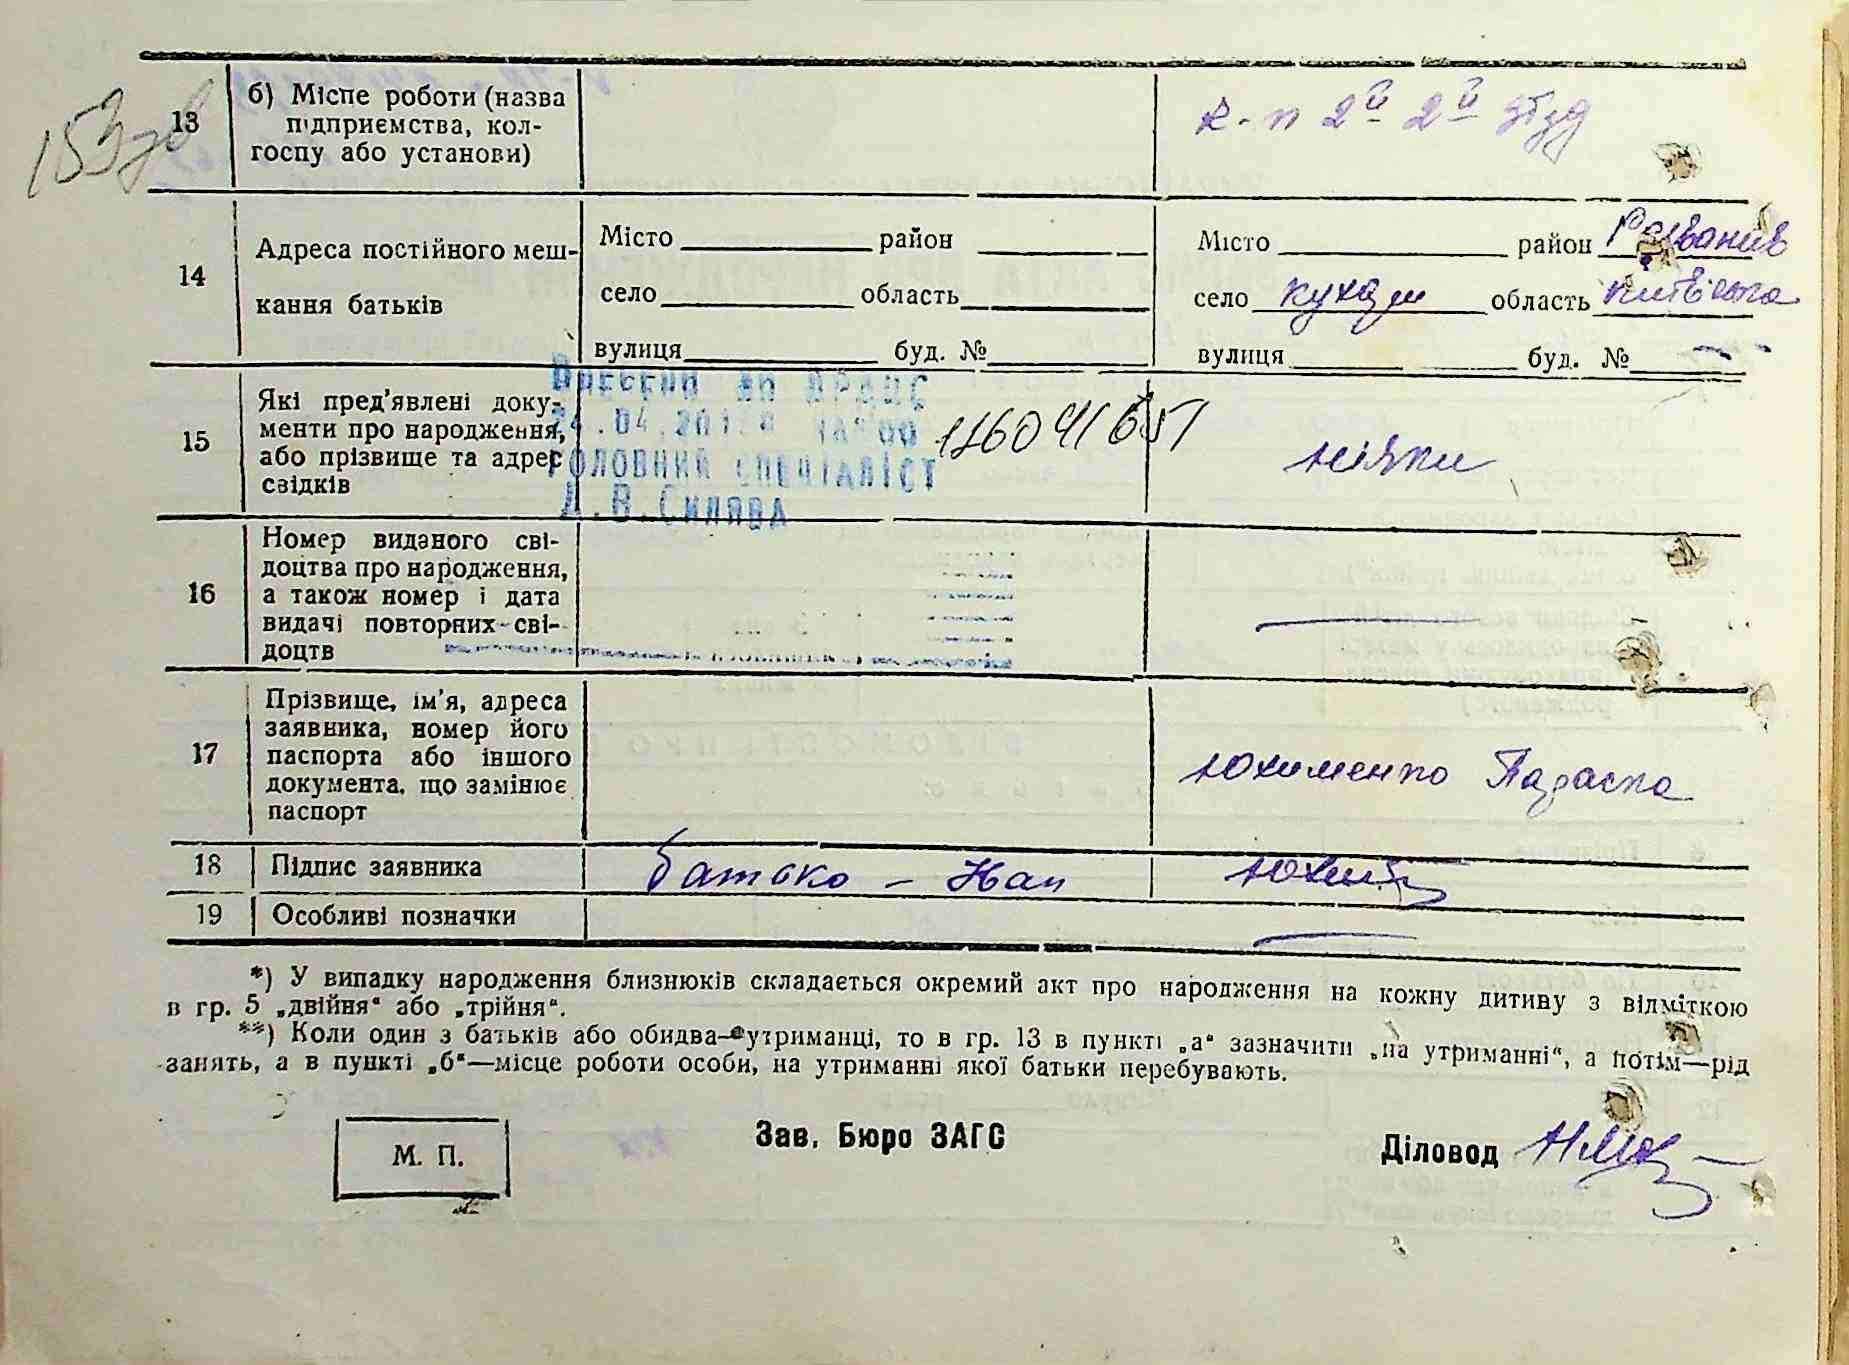 153 зв
13 б) Місце роботи (назва
підприємства, кол-
госпу або установи)
к-п 2й 2й
14 Адреса постійного меш-
кання батьків
Місто район
село область
вулиця буд. №
Місто район Розванів
село Кухари область Київська
вулиця буд. № —
15 Які пред'явлені доку-
менти про народження,
або прізвище та адрес
свідків
Внесено до ДРАЦС
24.04.201
ГОЛОВНИЙ СПЕЦІАЛІСТ
Д.В.Силява
ніяки
16 Номер виданого сві-
доцтва про народження,
а також номер і дата
видачі повторних сві-
доцтв
—
17 Прізвище, ім'я, адреса
заявника, номер його
паспорта або іншого
документа, що замінює
паспорт
Юхименко Параска
18 Підпис заявника
батько –
19 Особливі позначки
—
*) У випадку народження близнюків складається окремий акт про народження на кожну дитину з відміткою
в гр. 5 „двійня“ або „трійня“.
**) Коли один з батьків або обидва—утриманці, то в гр. 13 в пункті „а“ зазначити „на утриманні“, а потім—рід
занять, а в пункті „б“—місце роботи особи, на утриманні якої батьки перебувають.
М. П.
Зав. Бюро ЗАГС
Діловод